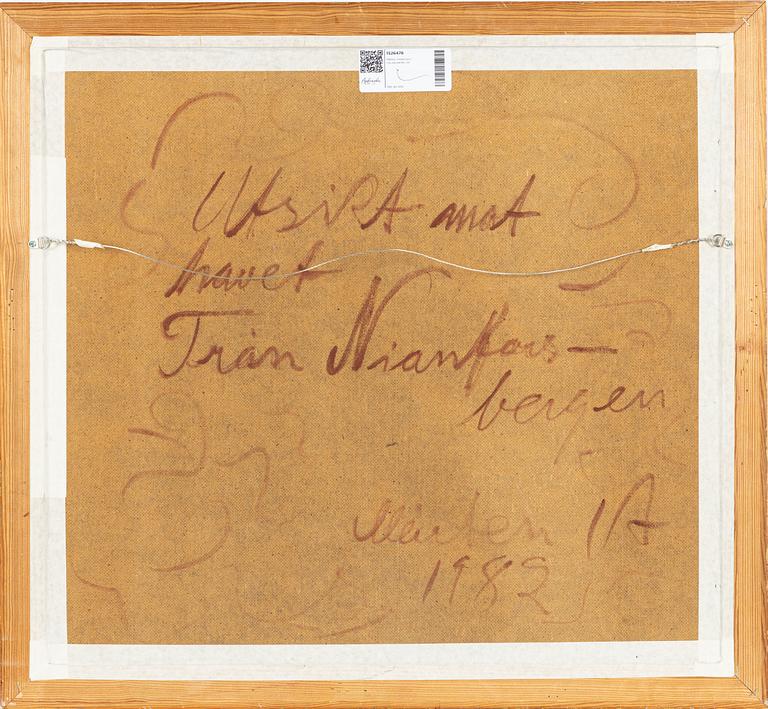 1526478
Utsikt mot
havet
Från Nianfors-
bergen
Mårten A
1982